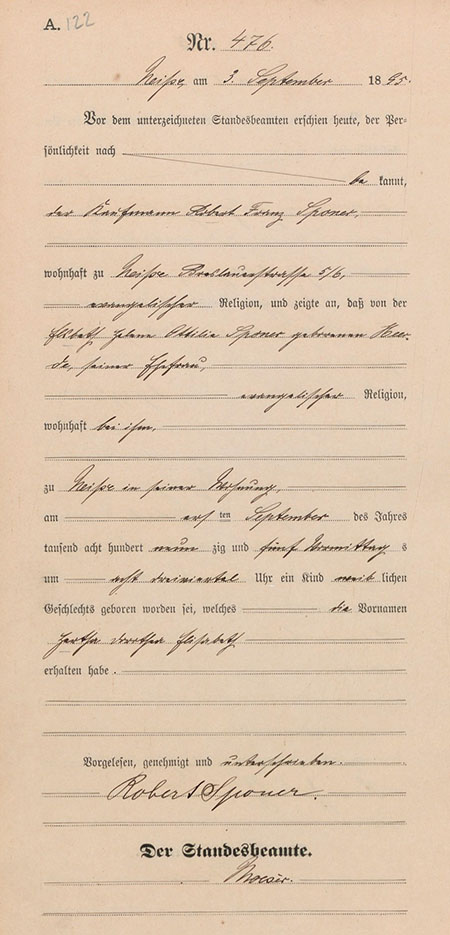 A. 122
Nr. 476.
Neiße, am 3. September 1895.
Vor dem unterzeichneten Standesbeamten erschien heute, der Per-
sönlichkeit nach
be kannt,
der Kaufmann Robert Franz Sponer,
wohnhaft zu Neiße Breslauerstrasse 5/6,
evangelischer Religion, und zeigte an, daß von der
Elsbeth Helene Ottilie Sponer geborenen Heer-
de, seiner Ehefrau,
evangelischer Religion,
wohnhaft bei ihm,
zu Neiße in seiner Wohnung,
am ers ten September des Jahres
tausend acht hundert neun zig und fünf Vormittag s
um acht dreiviertel Uhr ein Kind weib lichen
Geschlechts geboren worden sei, welches die Vornamen
Hertha Dorothea Elisabeth
erhalten habe.
Vorgelesen, genehmigt und unterschrieben.
Robert Sponer.
Der Standesbeamte.